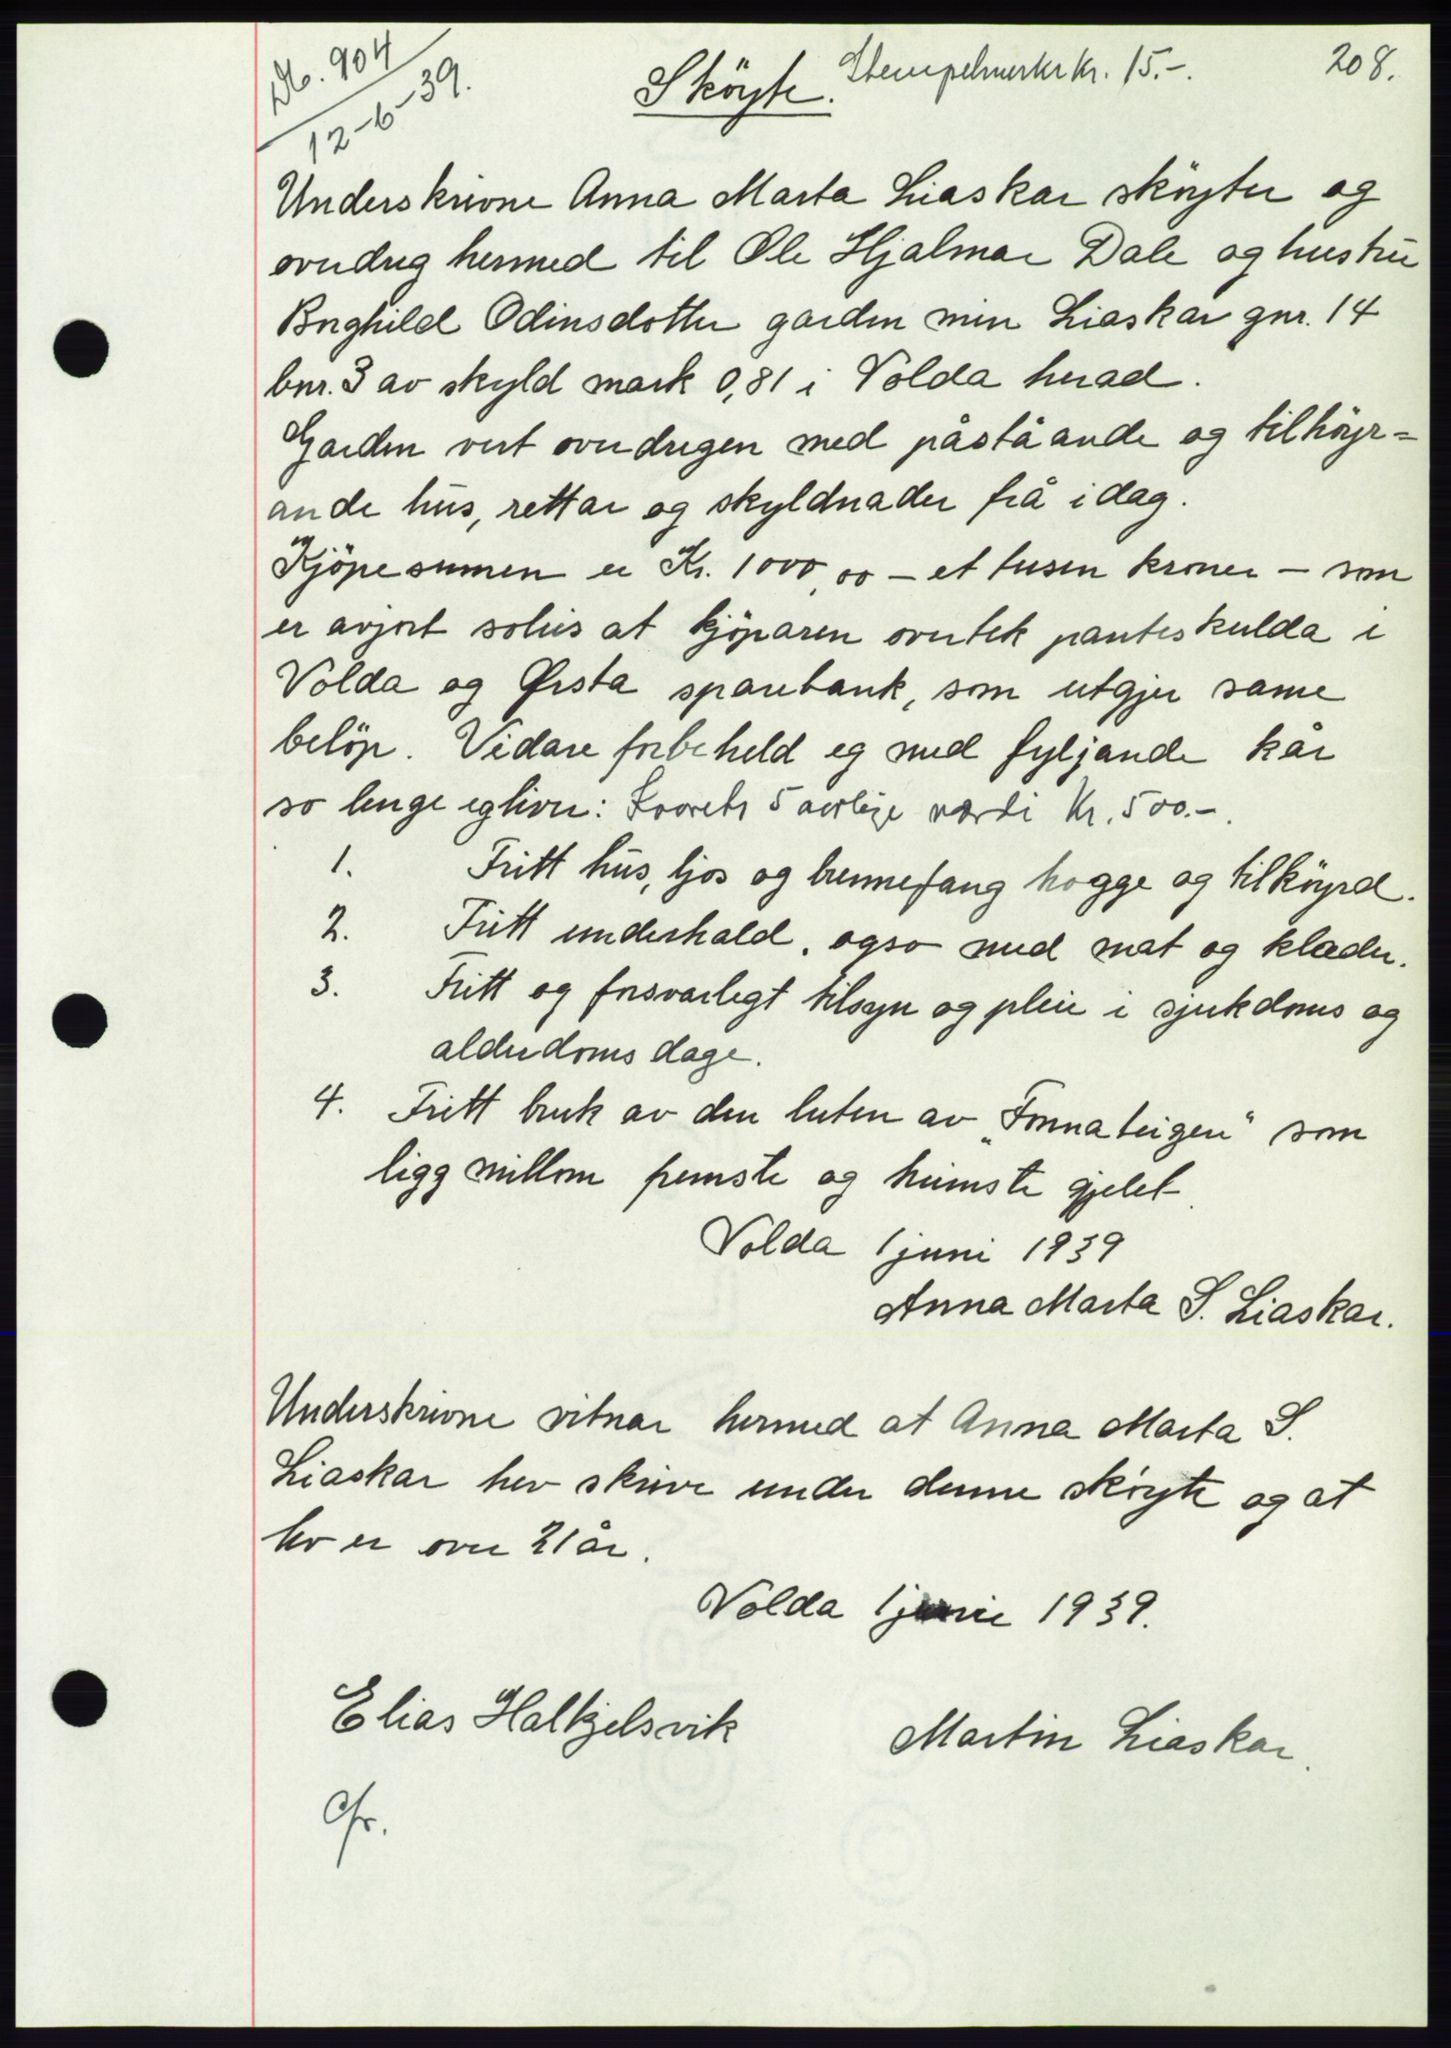 Nr. 904
12-6-39.
Sköyte. Stempelmerke kr. 15.-. 208.
Underskrivne Anna Marta Liaskar sköyter og
overdreg hermed til Ole Hjalmar Dale og hustru
Borghild Odinsdotter garden min Liaskar gnr. 14
bnr. 3 av skyld mark 0,81 i Volda herad.
Garden vert overdregen med påståande og tilhöyr=
ande hus, rettar og skyldnader frå idag.
Kjöpesumen er Kr. 1000,00 – et tusen kroner – som
er avjort soleis at kjöparen overtek panteskulda i
Volda og Ørsta sparebank, som utgjer same
belöp. Vidare forbeheld eg med fyljande kår
so lenge eg liver: Kaarets 5 aarlige værdi Kr. 500.-.
1. Fritt hus, ljos og brennefang hogge og tilköyrd.
2. Fritt underhald, ogso med mat og klæder.
3. Fritt og forsvarlegt tilsyn og pleie i sjukdoms og
alderdoms dage.
4. Fritt bruk av den luten av „Fonnateigen“ som
ligg millom fremste og heimste gjelet.
Volda 1 juni 1939
Anna Marta S. Liaskar.
Underskrivne vitnar hermed at Anna Marta S.
Liaskar hev skrive under denne sköyte og at
ho er over 21 år.
Volda 1 juni 1939.
Elias Halkjelsvik Martin Liaskar.